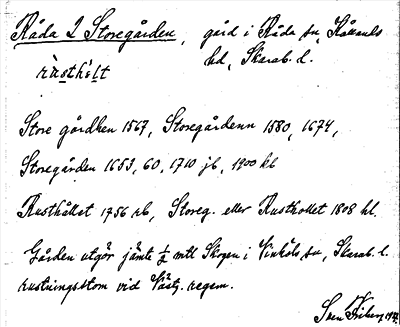 Råda 2 Storegården, gård i Råda sn, Kållands
hd, Skarab. l.
rùsthól̀t
Store gårdhen 1567, Storegårdenn 1580, 1674,
Storegården 1653, 60, 1710 jb, 1900 kb
Rusthållet 1756 rb, Storeg. eller Rusthollet 1808 hl.
Gården utgör jämte 1/2 mtl Skogen i Vinköls sn, Skarab. l.
rustningsstom vid Västg. regem.
Sven Friberg